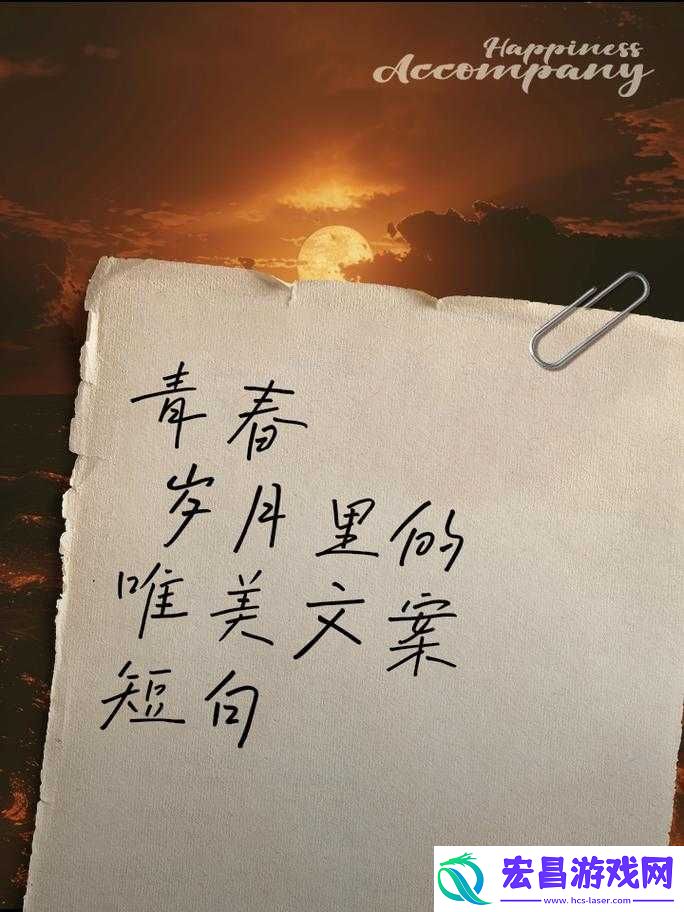 Happiness
Accompany
青春
岁月里的
唯美文案
短句
宏昌游戏网
www.hcs-laser.com